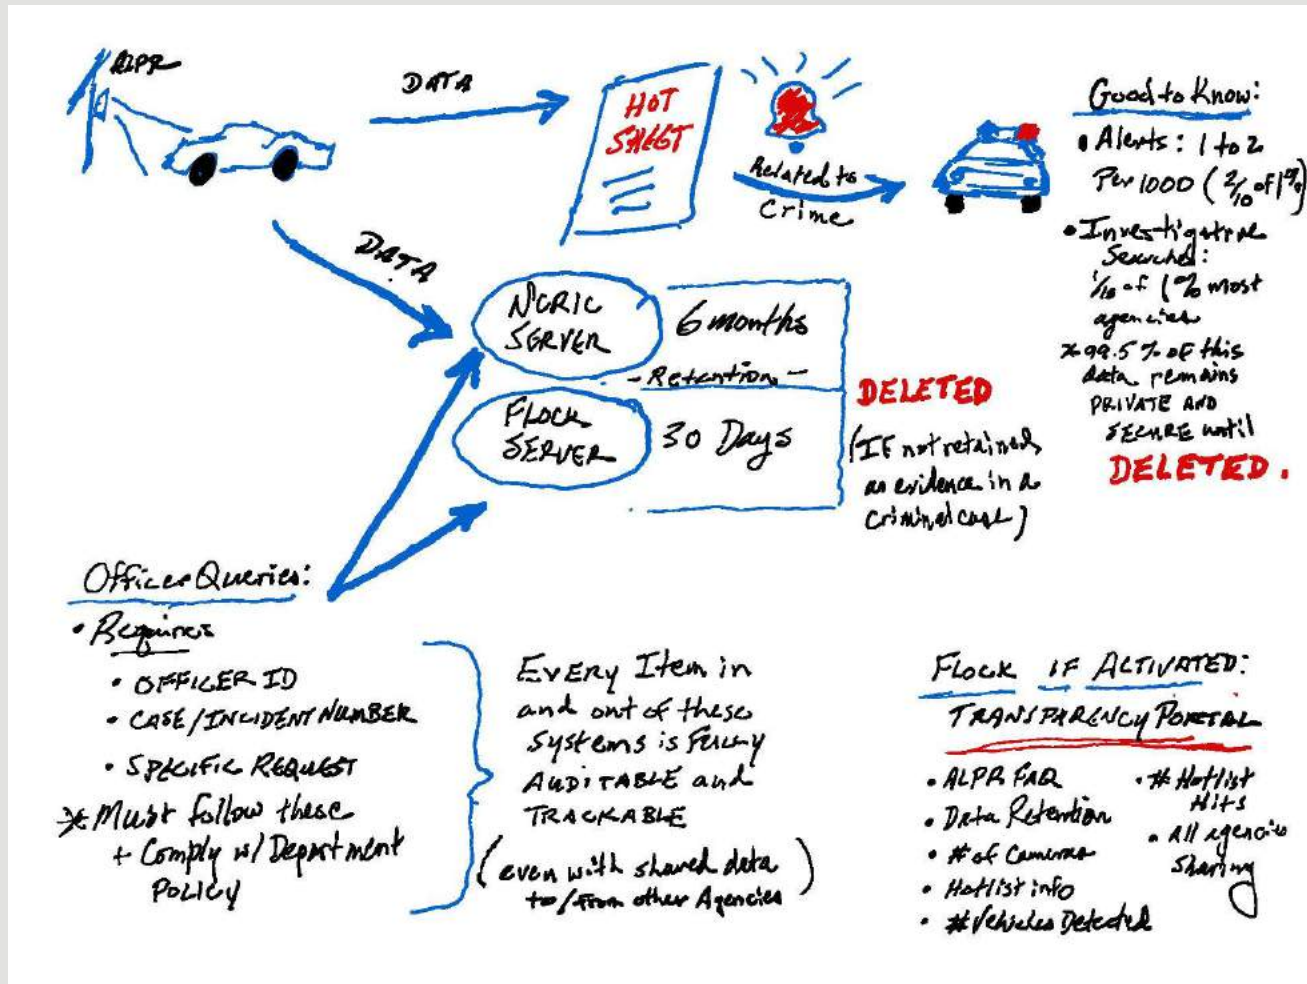 ALPR
DATA
HOT
SHEET
Related to
Crime
Good to Know:
• Alerts: 1 to 2
Per 1000 (2/10 of 1%)
• Investigative
Searches:
1/10 of 1% most
agencies
* 99.5% of this
data remains
PRIVATE AND
SECURE until
DELETED.
DATA
NCRIC
SERVER
6 months
- Retention -
FLOCK
SERVER
30 Days
DELETED
(IF not retained
as evidence in a
criminal case)
Officer Queries:
• Requires
• OFFICER ID
• CASE/INCIDENT NUMBER
• SPECIFIC REQUEST
* Must follow these
+ Comply w/ Department
POLICY
EVERY Item in
and out of these
systems is FULLY
AUDITABLE and
TRACKABLE
(even with shared data
to/from other Agencies)
FLOCK IF ACTIVATED:
TRANSPARENCY PORTAL
• ALPR FAQ
• Data Retention
• # of Cameras
• Hotlist info
• # Vehicles Detected
• # Hotlist
Hits
• All agencies
sharing